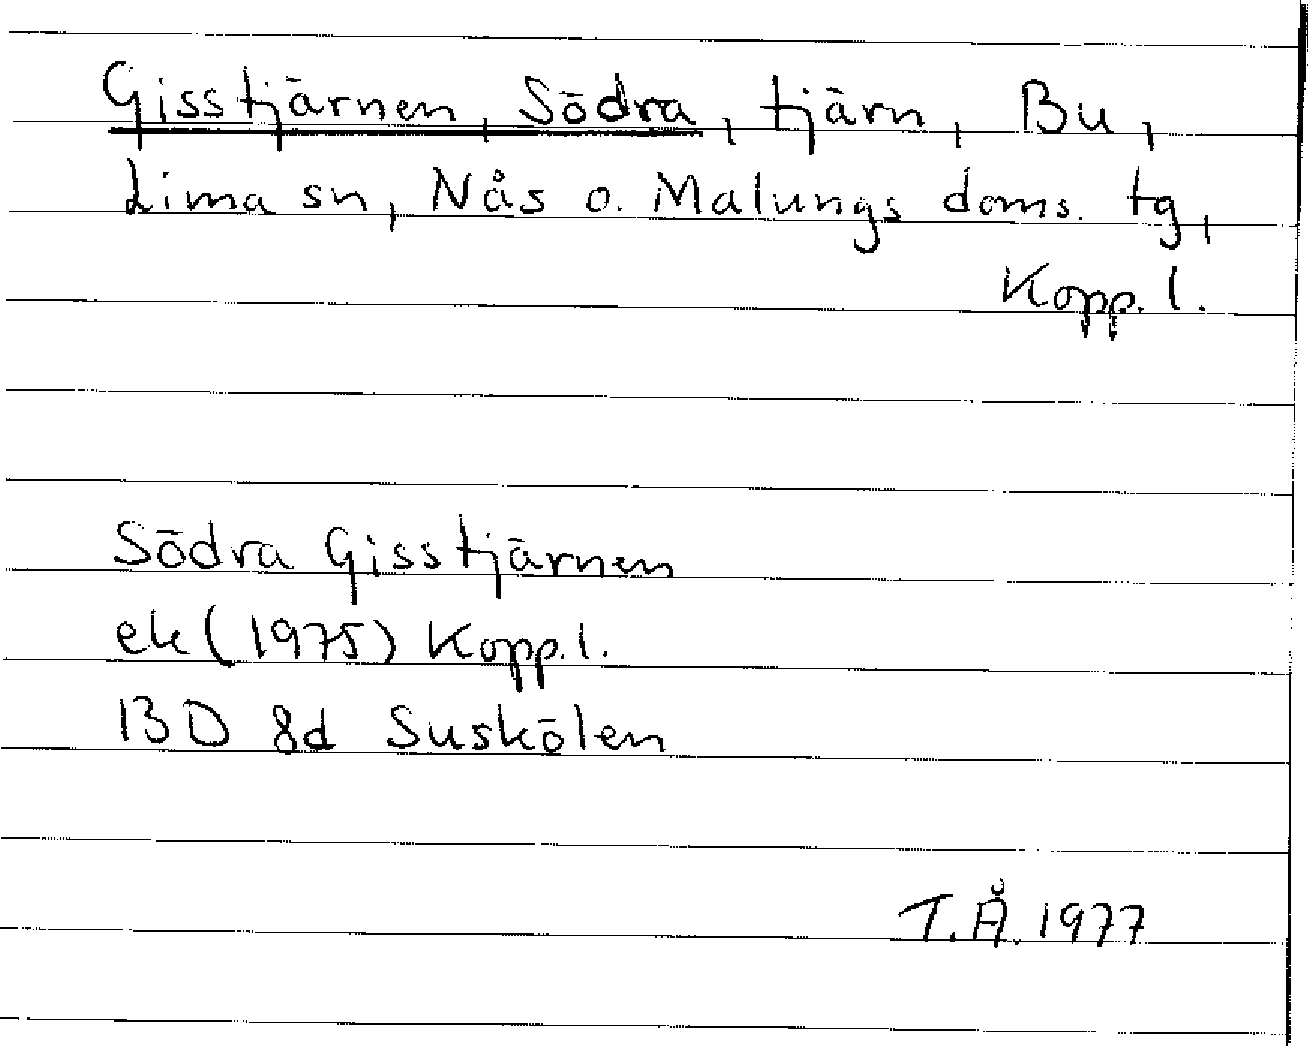 Gisstjärnen, Södra, tjärn, Bu,
Lima sn, Nås o. Malungs doms. tg,
Kopp. l.
Södra Gisstjärnen
ek (1975) Kopp. l.
13D 8d Suskölen
T.Å. 1977